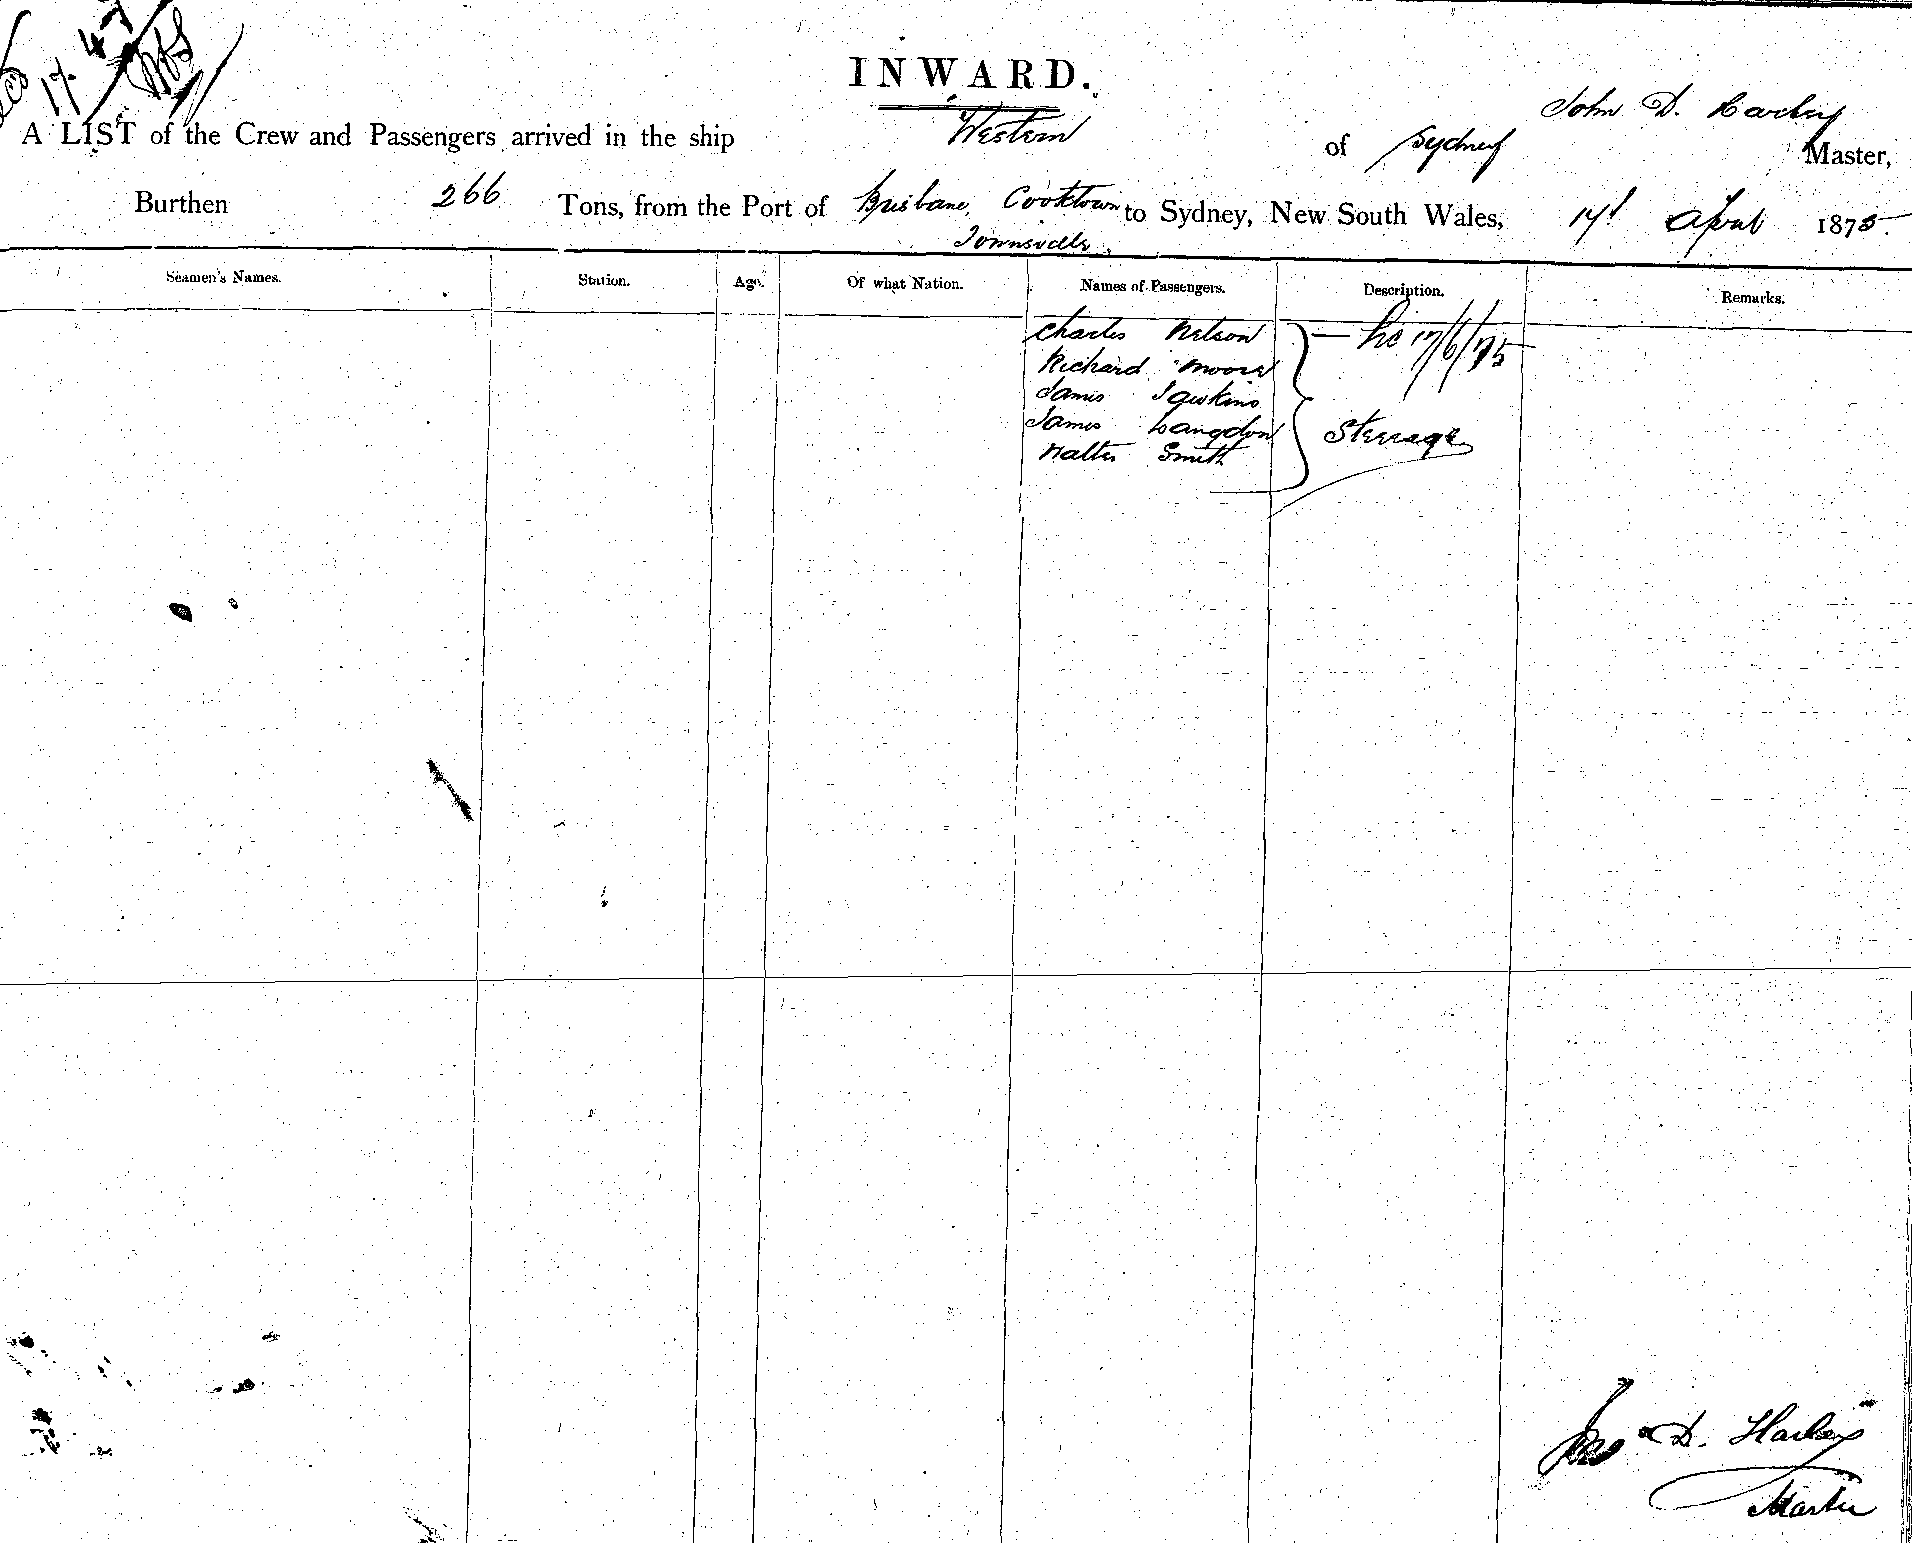 17. 4-7
INWARD.
A LIST of the Crew and Passengers arrived in the ship Western of Sydney John D. Harley Master,
Burthen 266 Tons, from the Port of Brisbane, Cooktown to Sydney, New South Wales, 17th April 1875.
Townsville.
Seamen's Names. Station. Age. Of what Nation. Names of Passengers. Description. Remarks.
Charles Nelson 17/6/75
Richard Moore
James Hawkins
James Langdon Steerage
Walter Smith
Jno D. Harley
Master